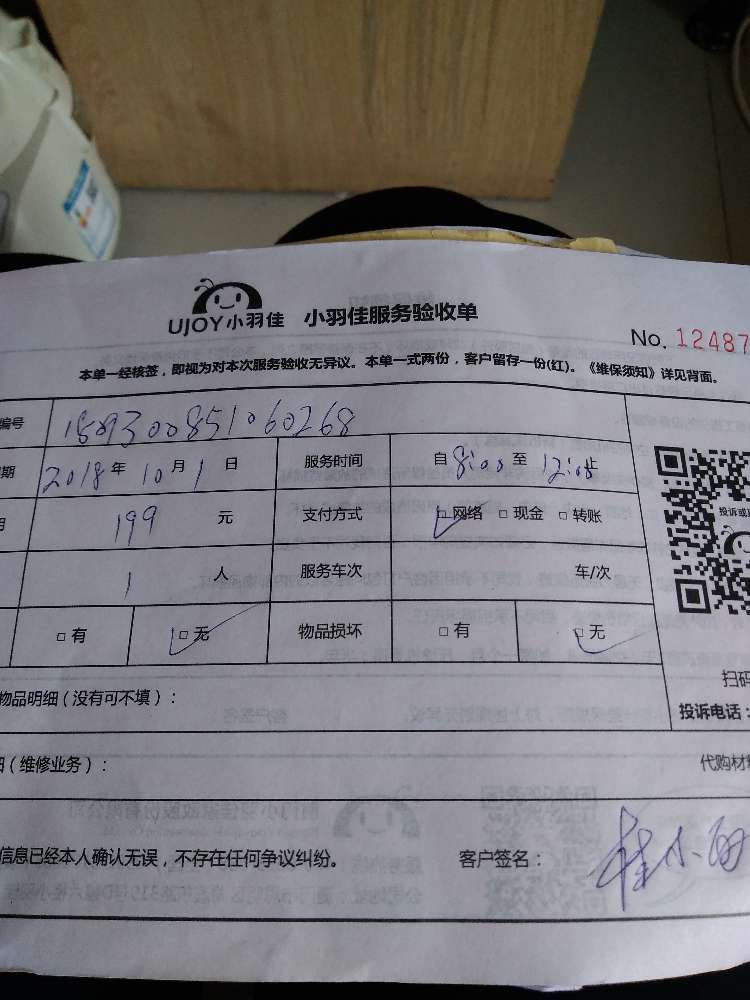 UJOY小羽佳 小羽佳服务验收单
No. 12487
本单一经核签，即视为对本次服务验收无异议。本单一式两份，客户留存一份(红)。《维保须知》详见背面。
编号 1809300851060268
期 2018 年 10 月 1 日 服务时间 自 8:00 至 12:00 止
用 199 元 支付方式 □ 网络 □ 现金 □ 转账
投诉或
1 人 服务车次 车/次
□ 有 □ 无 物品损坏 □ 有 □ 无
扫码
物品明细（没有可不填）：
投诉电话：
（维修业务）： 代购材
信息已经本人确认无误，不存在任何争议纠纷。 客户签名：